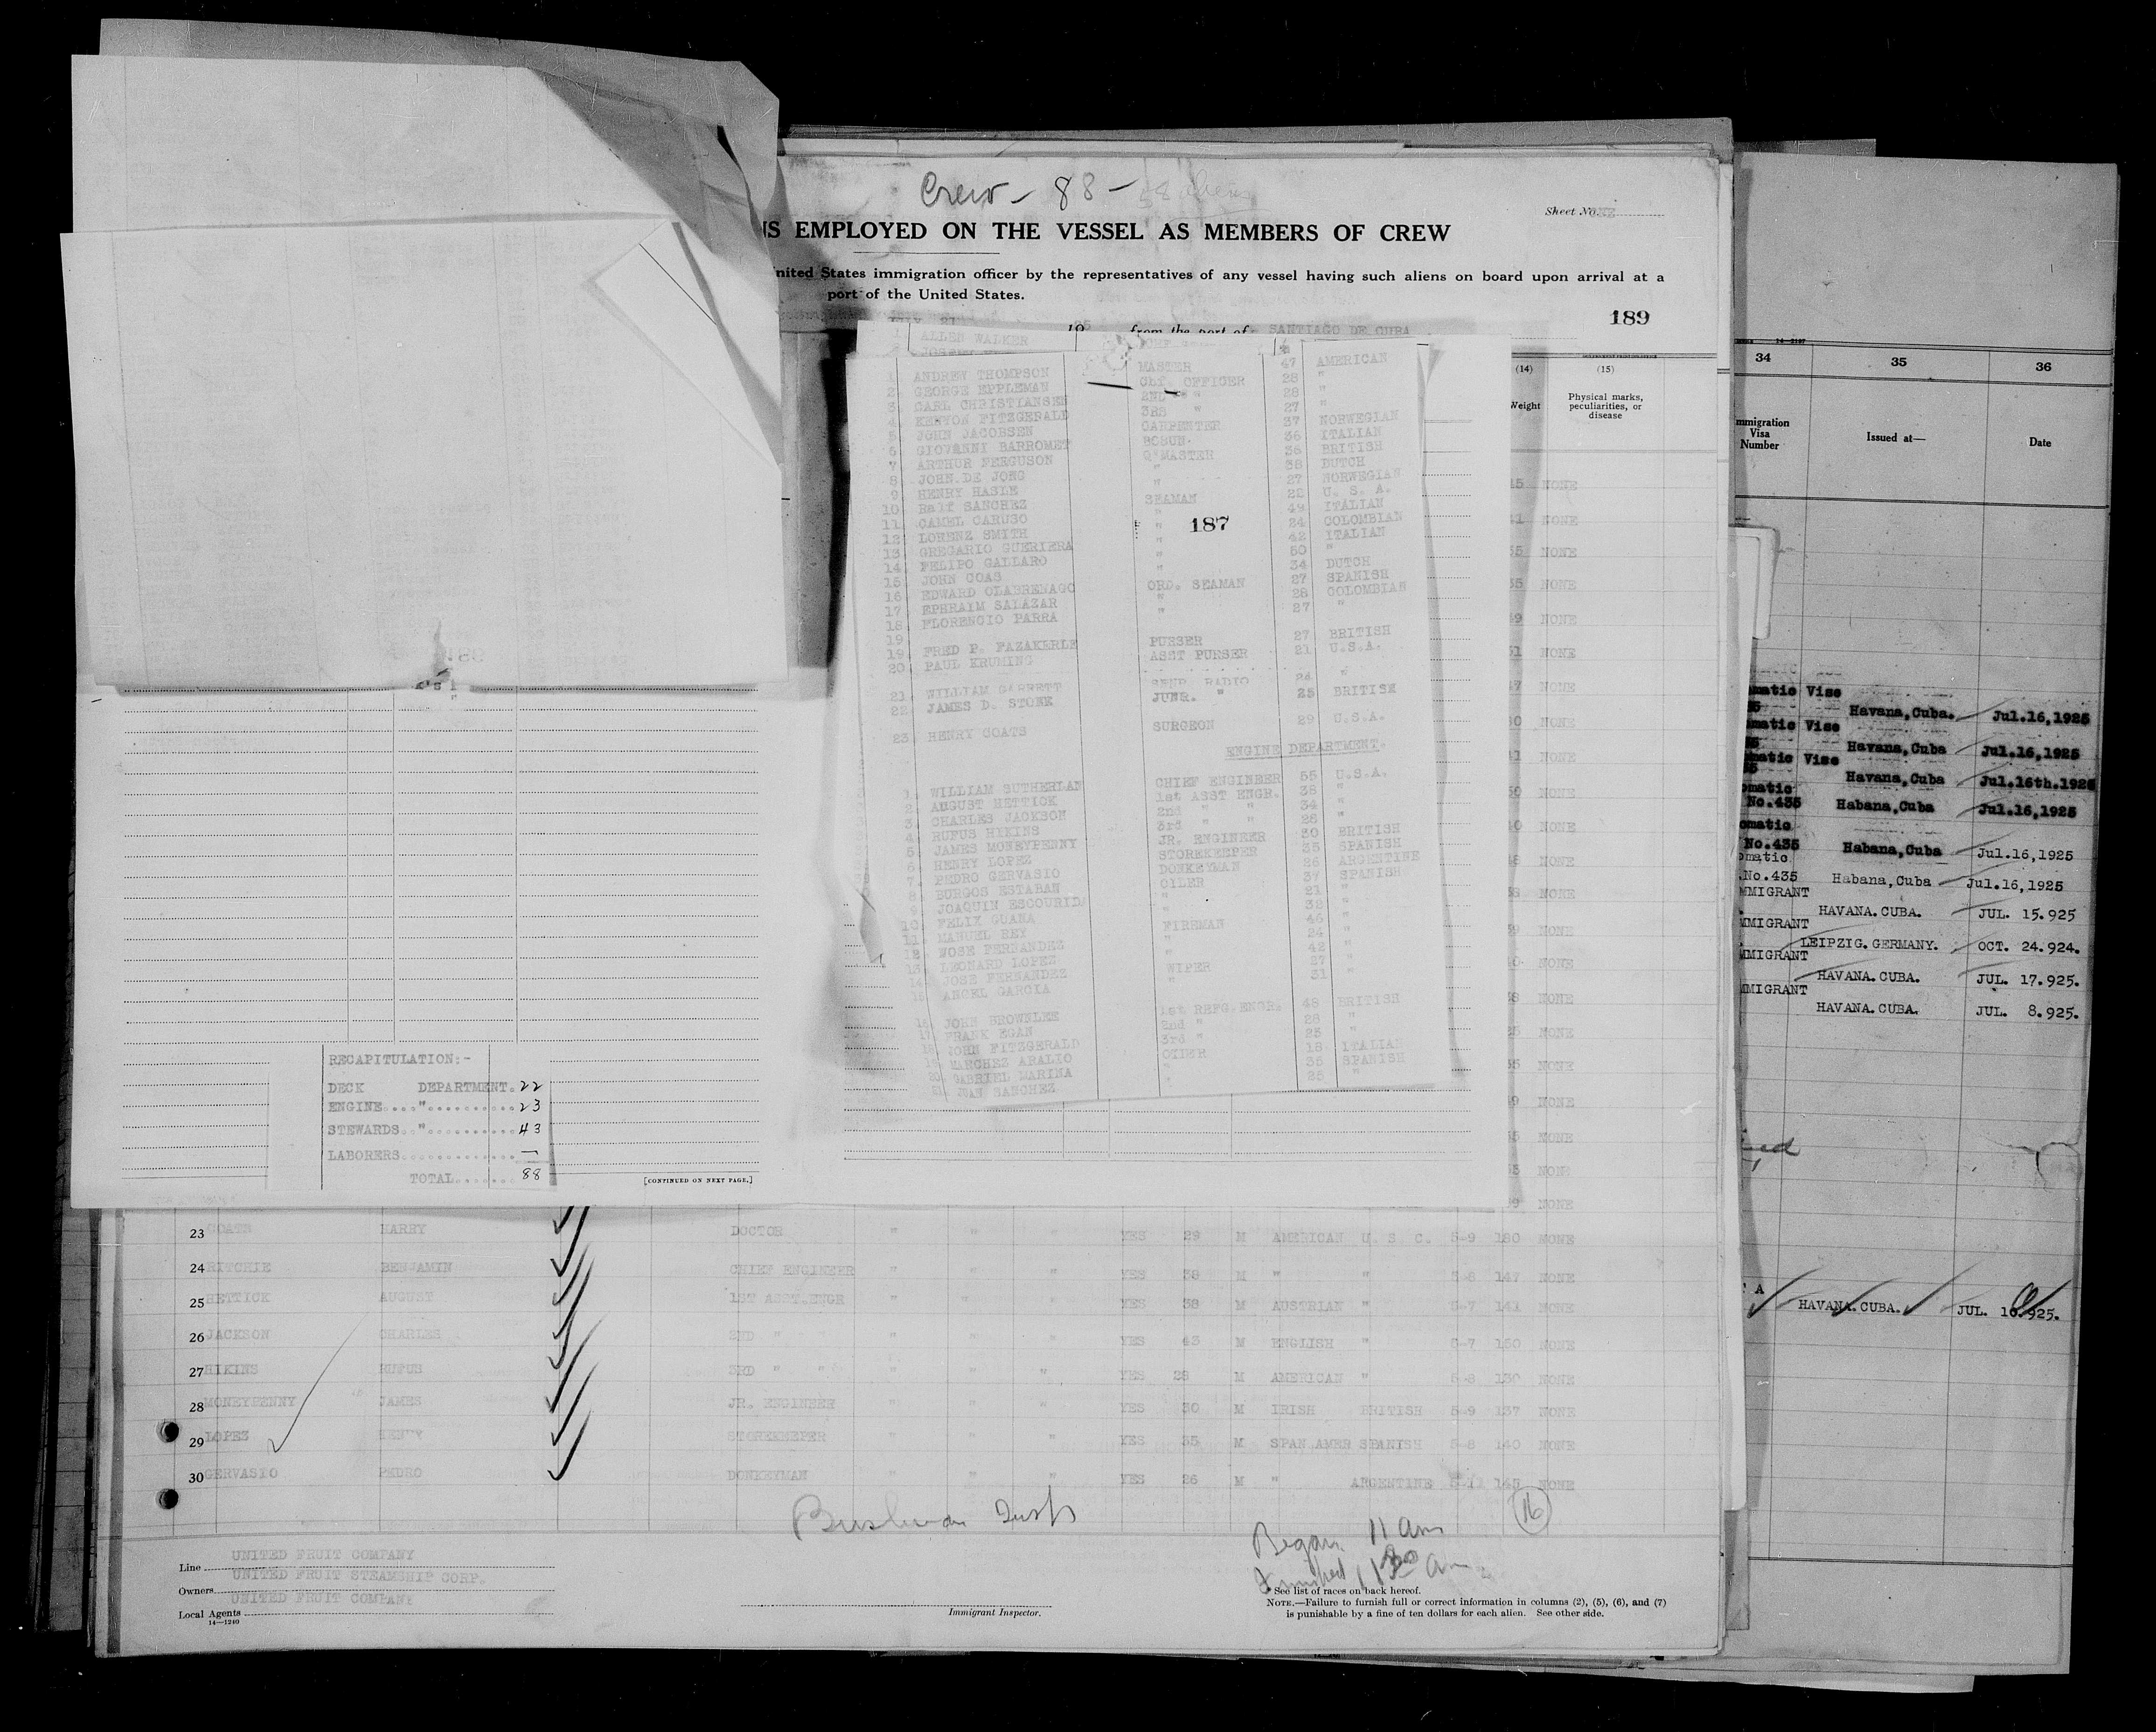 Crew - 88 - 58 aliens
Sheet No.
NS EMPLOYED ON THE VESSEL AS MEMBERS OF CREW
United States immigration officer by the representatives of any vessel having such aliens on board upon arrival at a
port of the United States.
189
JULY 21 1925 from the port of SANTIAGO DE CUBA
ALLEN WALKER
1 ANDREW THOMPSON MASTER 47 AMERICAN
2 GEORGE EPPLEMAN Chf. OFFICER 28 "
3 CARL CHRISTIANSEN 2ND " 28 "
4 KENYON FITZGERALD 3RS " 27 "
5 JOHN JACOBSEN CARPENTER 37 NORWEGIAN
6 GIOVANNI BARROMET BOSUN. 36 ITALIAN
7 ARTHUR FERGUSON Q'MASTER 36 BRITISH
8 JOHN DE JONG " 38 DUTCH
9 HENRY HASLE " 27 NORWEGIAN
10 Ralf SANCHEZ SEAMAN 22 U. S. A.
11 CAMEL CARUSO " 49 ITALIAN
12 LORENZ SMITH " 24 COLOMBIAN
13 GREGARIO GUERIERA " 42 ITALIAN
14 FELIPO GALLARO " 50 "
15 JOHN COAS " 34 DUTCH
16 EDWARD OLABRENAGO ORD. SEAMAN 27 SPANISH
17 EPHRAIM SALAZAR " 28 COLOMBIAN
18 FLORENCIO PARRA " 27 "
19
19 FRED P. FAZAKERLE PURSER 27 BRITISH
20 PAUL KRUMING ASST PURSER 21 U.S.A.
21 WILLIAM GARRETT SENR. RADIO 24 "
22 JAMES D. STONE JUNR. " 25 BRITISH
23 HENRY COATS SURGEON 29 U.S.A.
187
ENGINE DEPARTMENT.
1. WILLIAM SUTHERLAN CHIEF ENGINEER 55 U.S.A.
2. AUGUST HETTICK 1st ASST ENGR. 38 "
3. CHARLES JACKSON 2nd " " 34 "
4. RUFUS HIKINS 3rd " " 28 "
5. JAMES MONEYPENNY JR. ENGINEER 30 BRITISH
6. HENRY LOPEZ STOREKEEPER 35 SPANISH
7. PEDRO GERVASIO DONKEYMAN 26 ARGENTINE
8. BURGOS ESTABAN OILER 37 SPANISH
9. JOAQUIN ESCOURIDA " 21 "
10. FELIX GUANA " 32 "
11. MANUEL REY FIREMAN 46 "
12. NOSE FERNANDEZ " 24 "
13. LEONARD LOPEZ " 42 "
14. JOSE FERNANDEZ WIPER 27 "
15. ANGEL GARCIA " 31 "
16. JOHN BROWNLEE 1st REFG.ENGR. 48 BRITISH
17. FRANK EGAN 2nd " 28 "
18. JOHN FITZGERALD 3rd " 25 "
19. MARCHEZ ARALIO OILER 18 ITALIAN
20. GABRIEL MARINA " 35 SPANISH
21. JUAN SANCHEZ " 25 "
(14) (15)
Weight Physical marks,
peculiarities, or
disease
NONE
NONE
NONE
NONE
NONE
NONE
NONE
NONE
NONE
NONE
NONE
NONE
NONE
NONE
NONE
NONE
NONE
NONE
NONE
NONE
NONE
NONE
34 35 36
Immigration
Visa
Number Issued at— Date
omatic Vise
Havana,Cuba. Jul.16,1925
omatic Vise
Havana,Cuba Jul.16,1925
omatic Vise
Havana,Cuba Jul.16th.1925
omatic
No.435 Habana,Cuba Jul.16,1925
omatic
No.435 Habana,Cuba Jul.16,1925
omatic
.No.435 Habana,Cuba Jul.16,1925
MMIGRANT
HAVANA.CUBA. JUL. 15.925
MMIGRANT
LEIPZIG.GERMANY. OCT. 24.924.
MMIGRANT
HAVANA.CUBA. JUL. 17.925.
MMIGRANT
HAVANA.CUBA. JUL. 8.925.
A
HAVANA.CUBA. JUL. 10.925.
RECAPITULATION:-
DECK DEPARTMENT. 22
ENGINE...."........... 23
STEWARDS.."........... 43
LABORERS.............. —
TOTAL....... 88
[CONTINUED ON NEXT PAGE.]
23 COATR HARRY DOCTOR " " " YES 29 M AMERICAN U. S. C. 5-9 180 NONE
24 RITCHIE BENJAMIN CHIEF ENGINEER " " " YES 38 M " " 5-8 147 NONE
25 HETTICK AUGUST 1ST ASST.ENGR " " " YES 38 M AUSTRIAN " 5-7 141 NONE
26 JACKSON CHARLES 2ND " " " " YES 43 M ENGLISH " 5-7 150 NONE
27 HIKINS RUFUS 3RD " " " " " YES 28 M AMERICAN " 5-8 130 NONE
28 MONEYPENNY JAMES JR. ENGINEER " " " YES 30 M IRISH BRITISH 5-9 137 NONE
29 LOPEZ HENRY STOREKEEPER " " " YES 35 M SPAN.AMER SPANISH 5-8 140 NONE
30 GERVASIO PEDRO DONKEYMAN " " " YES 26 M " ARGENTINE 5-11 145 NONE
16
Began 11 am
Finished 11 30 am
Line UNITED FRUIT COMPANY
Owners UNITED FRUIT STEAMSHIP CORP.
Local Agents UNITED FRUIT COMPANY
14—1240
Immigrant Inspector.
* See list of races on back hereof.
NOTE.—Failure to furnish full or correct information in columns (2), (5), (6), and (7)
is punishable by a fine of ten dollars for each alien. See other side.